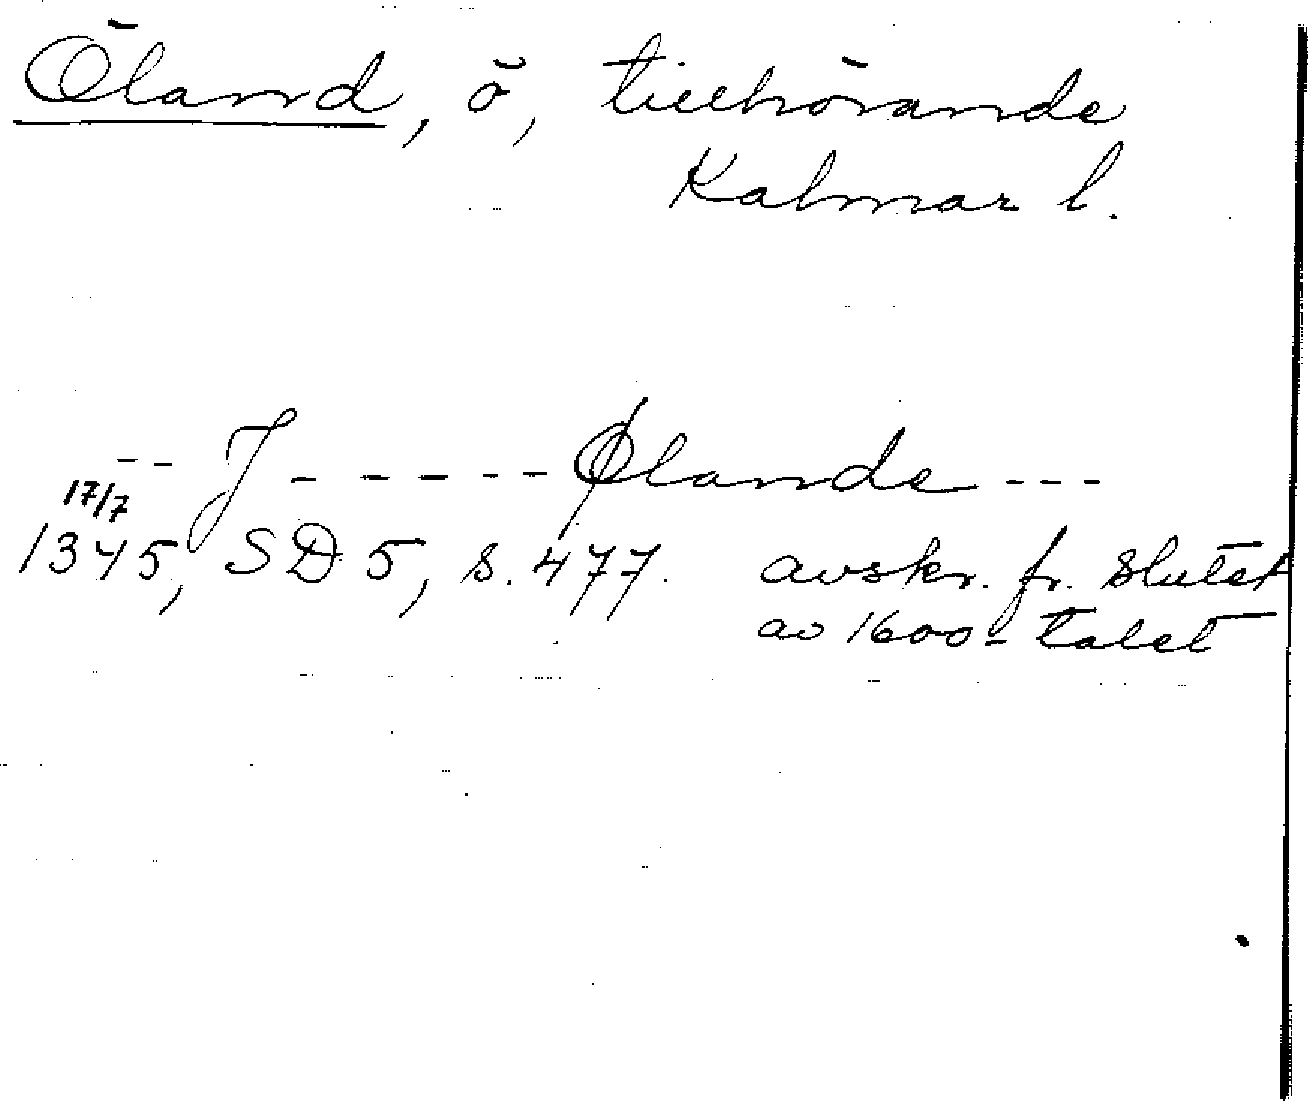 Öland, ö, tillhörande
Kalmar l.
-- J ------ Ølande ---
17/7
1345, SD 5, s. 477. avskr. fr. slutet
av 1600-talet